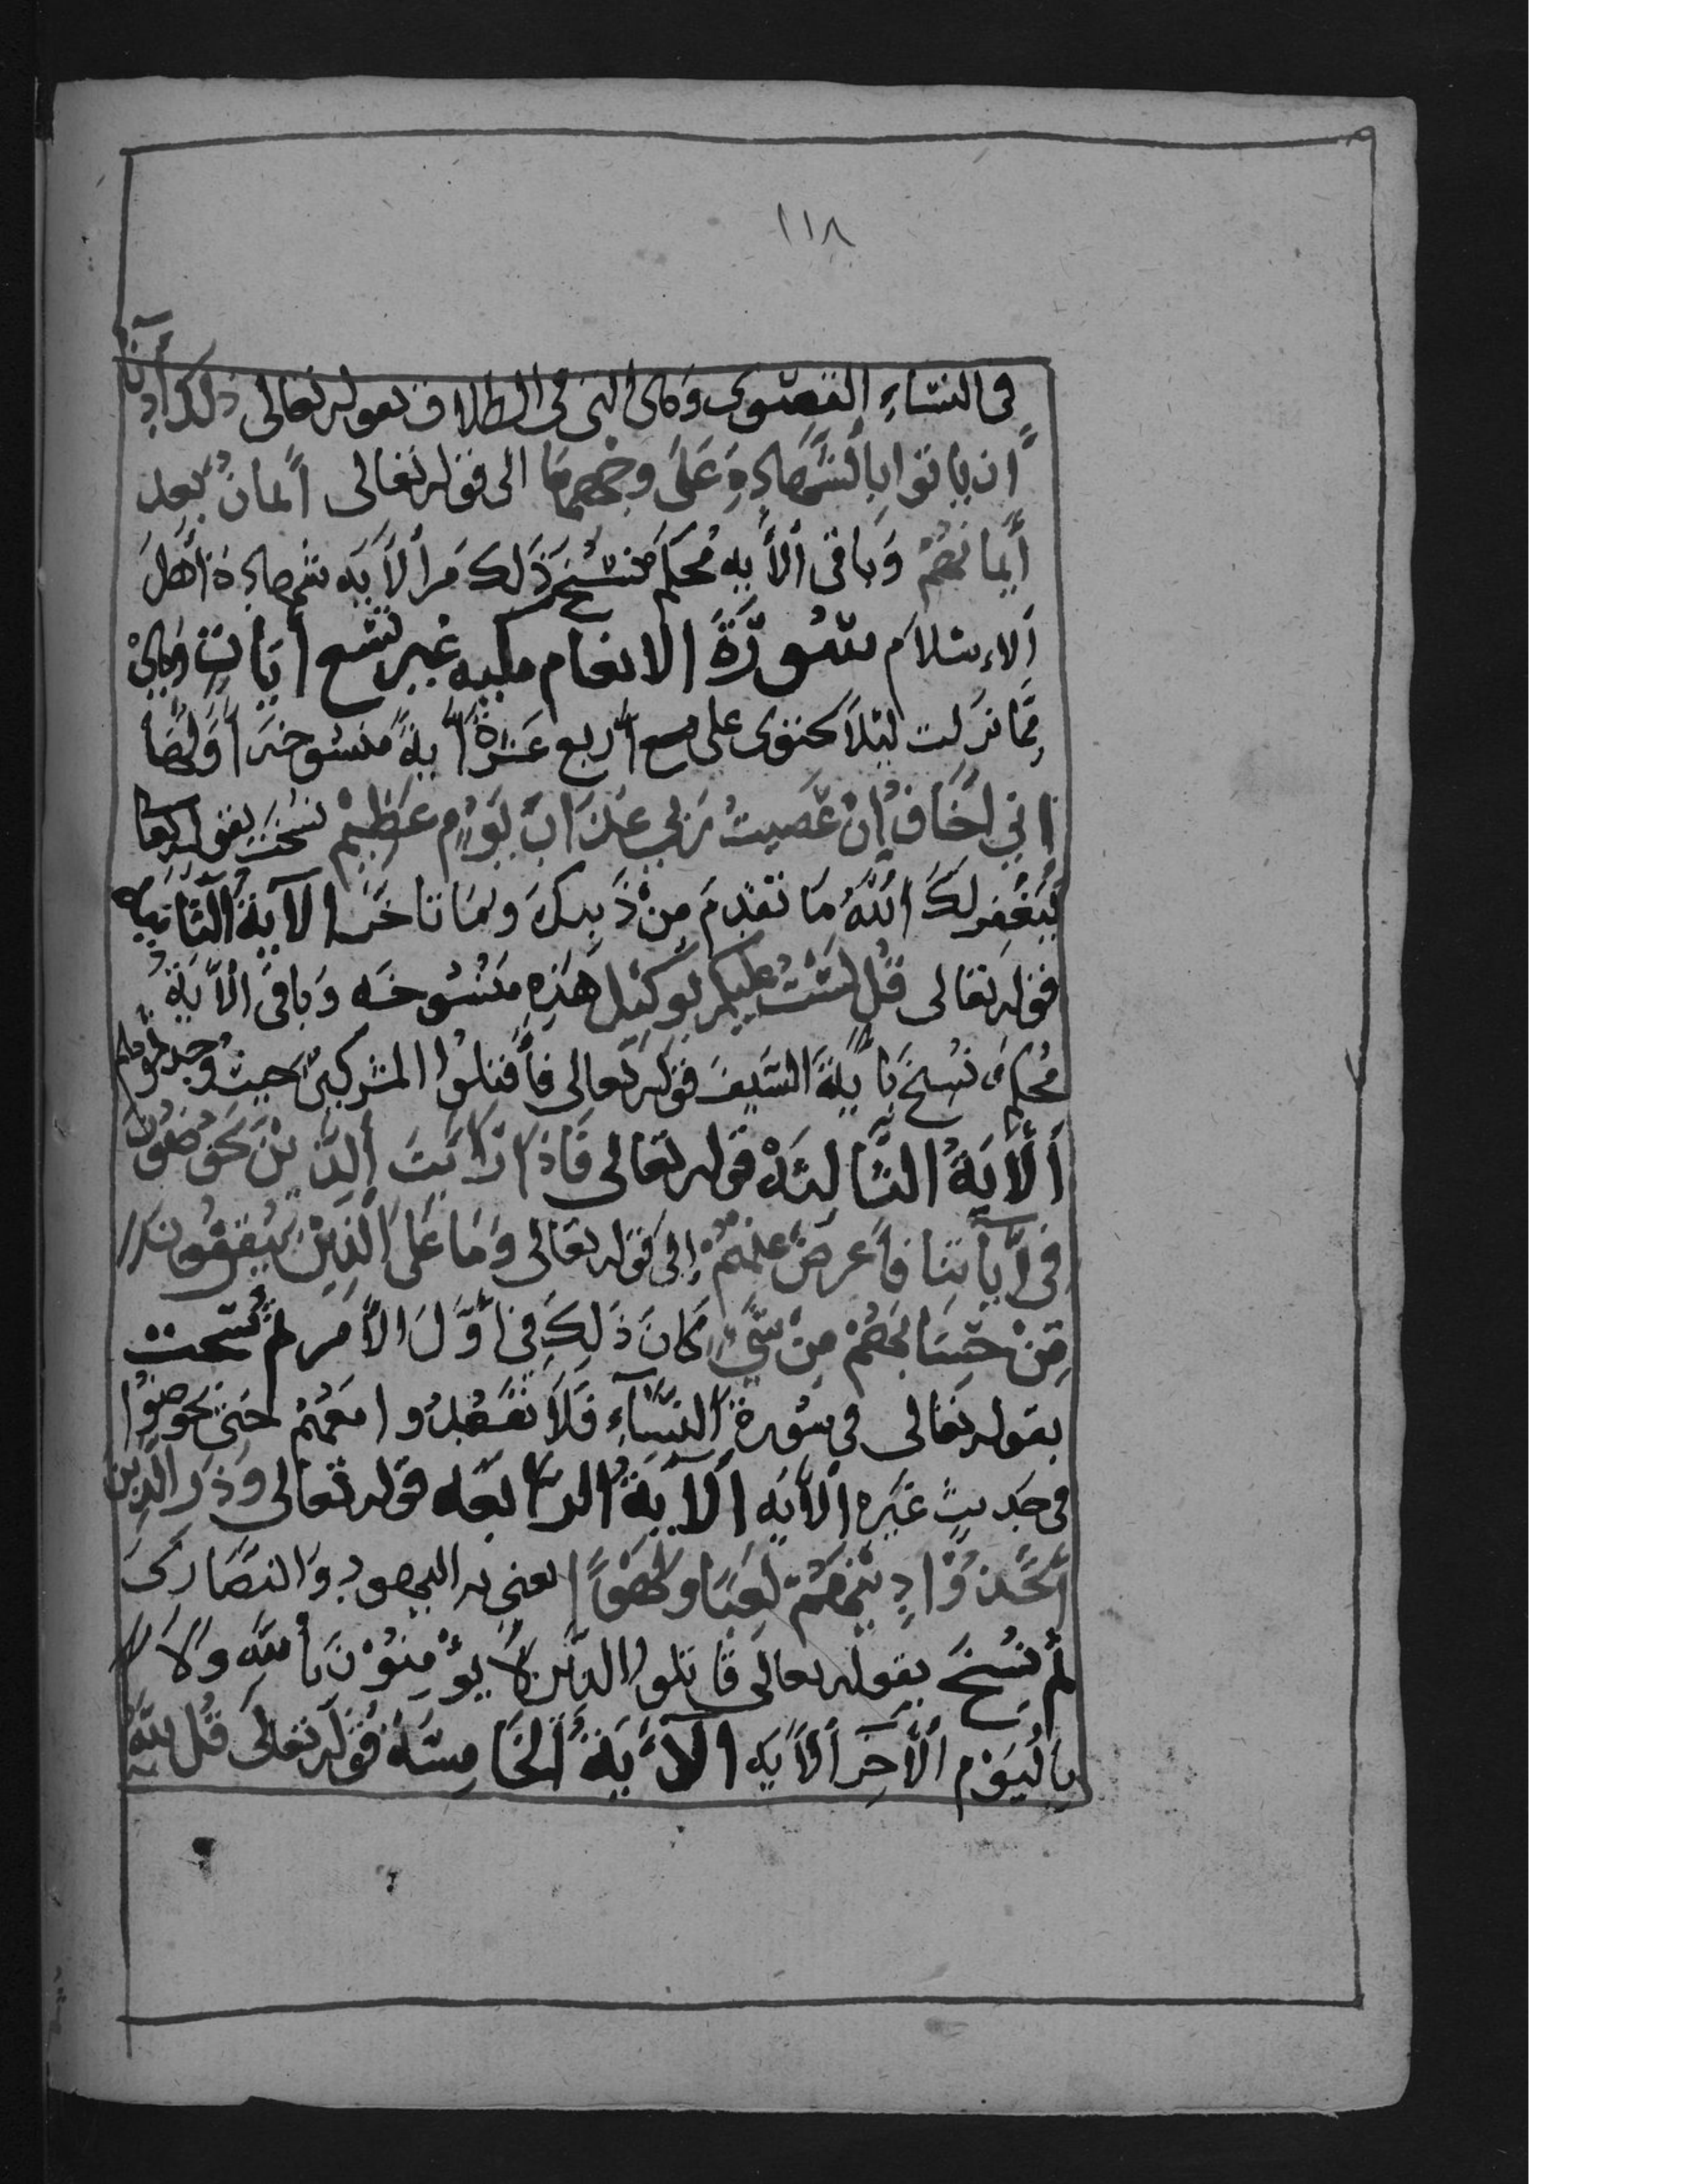 ١١٨
فى النساء القصوى وهى التى فى الطلاق بقوله تعالى ذلك أدنا
أن ياتوا بالشهادة على وجهها الى قوله تعالى أيمان بعد
أيمانهم وباقى الأيه محكم فنسخ ذلك من الأيه بشهادة أهل
الاسلام سورة الانعام مكيه غير تسع أيات وهى
مما نزلت ليلا تحتوى على أربع عشرة أية منسوخه أولها
انى أخاف ان عصيت ربي عذاب يوم عظيم نسخت بقوله تعا
ليغفر لك الله ما تقدم من ذنبك وما تاخر الاية الثانيه
قوله تعالى قل لست عليكم بوكيل هذه منسوخه وباقى الأية
محكم نسخ بأية السيف قوله تعالى فأقتلوا المشركين حيث وجدتموهم
ألأية الثالثه قوله تعالى فاذا رايت ألذين يخوضون
فى أياتنا فأعرض عنهم إلى قوله تعالى وما على الذين يتقون
من حسابهم من شيء كان ذلك فى أول الأمر ثم نسخت
بقوله تعالى فى سورة النساء فلا تقعدوا معهم حتى يخوضوا
فى حديث غيره الأيه ألاية الرابعه قوله تعالى وذر الذين
أتخذوا دينهم لعبا ولهوا يعنى به اليهود والنصارى
ثم نسخ بقوله تعالى قاتلوا الذين لا يؤمنون بألله ولا
باليوم الأخر ألأيه الأية الخامسة قوله تعالى قل الله